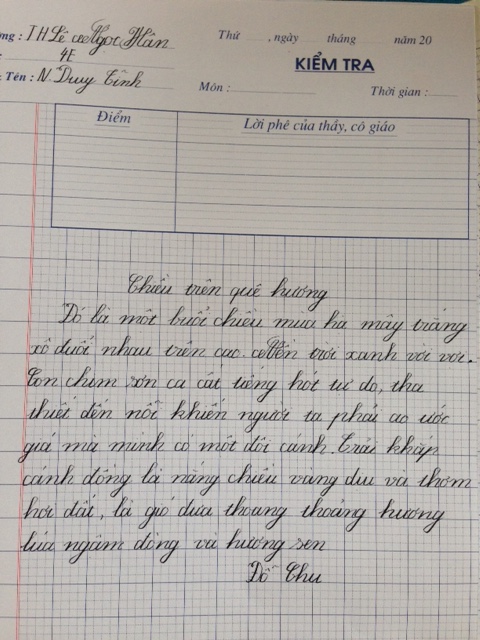 ng : TH Lê Ngọc Hân
Thứ ......, ngày ...... tháng ...... năm 20
: 4E
KIỂM TRA
Tên : N. Duy Tĩnh
Môn : ......
Thời gian : ......
Điểm
Lời phê của thầy, cô giáo
Chiều trên quê hương
Đó là một buổi chiều mùa hạ mây trắng
xô đuổi nhau trên cao. Nền trời xanh vời vợi.
Con chim sơn ca cất tiếng hót tự do, tha
thiết đến nỗi khiến người ta phải ao ước
giá mà mình có một đôi cánh. Trải khắp
cánh đồng là nắng chiều vàng dịu và thơm
hơi đất, là gió đưa thoang thoảng hương
lúa ngậm đòng và hương sen
Đỗ Chu